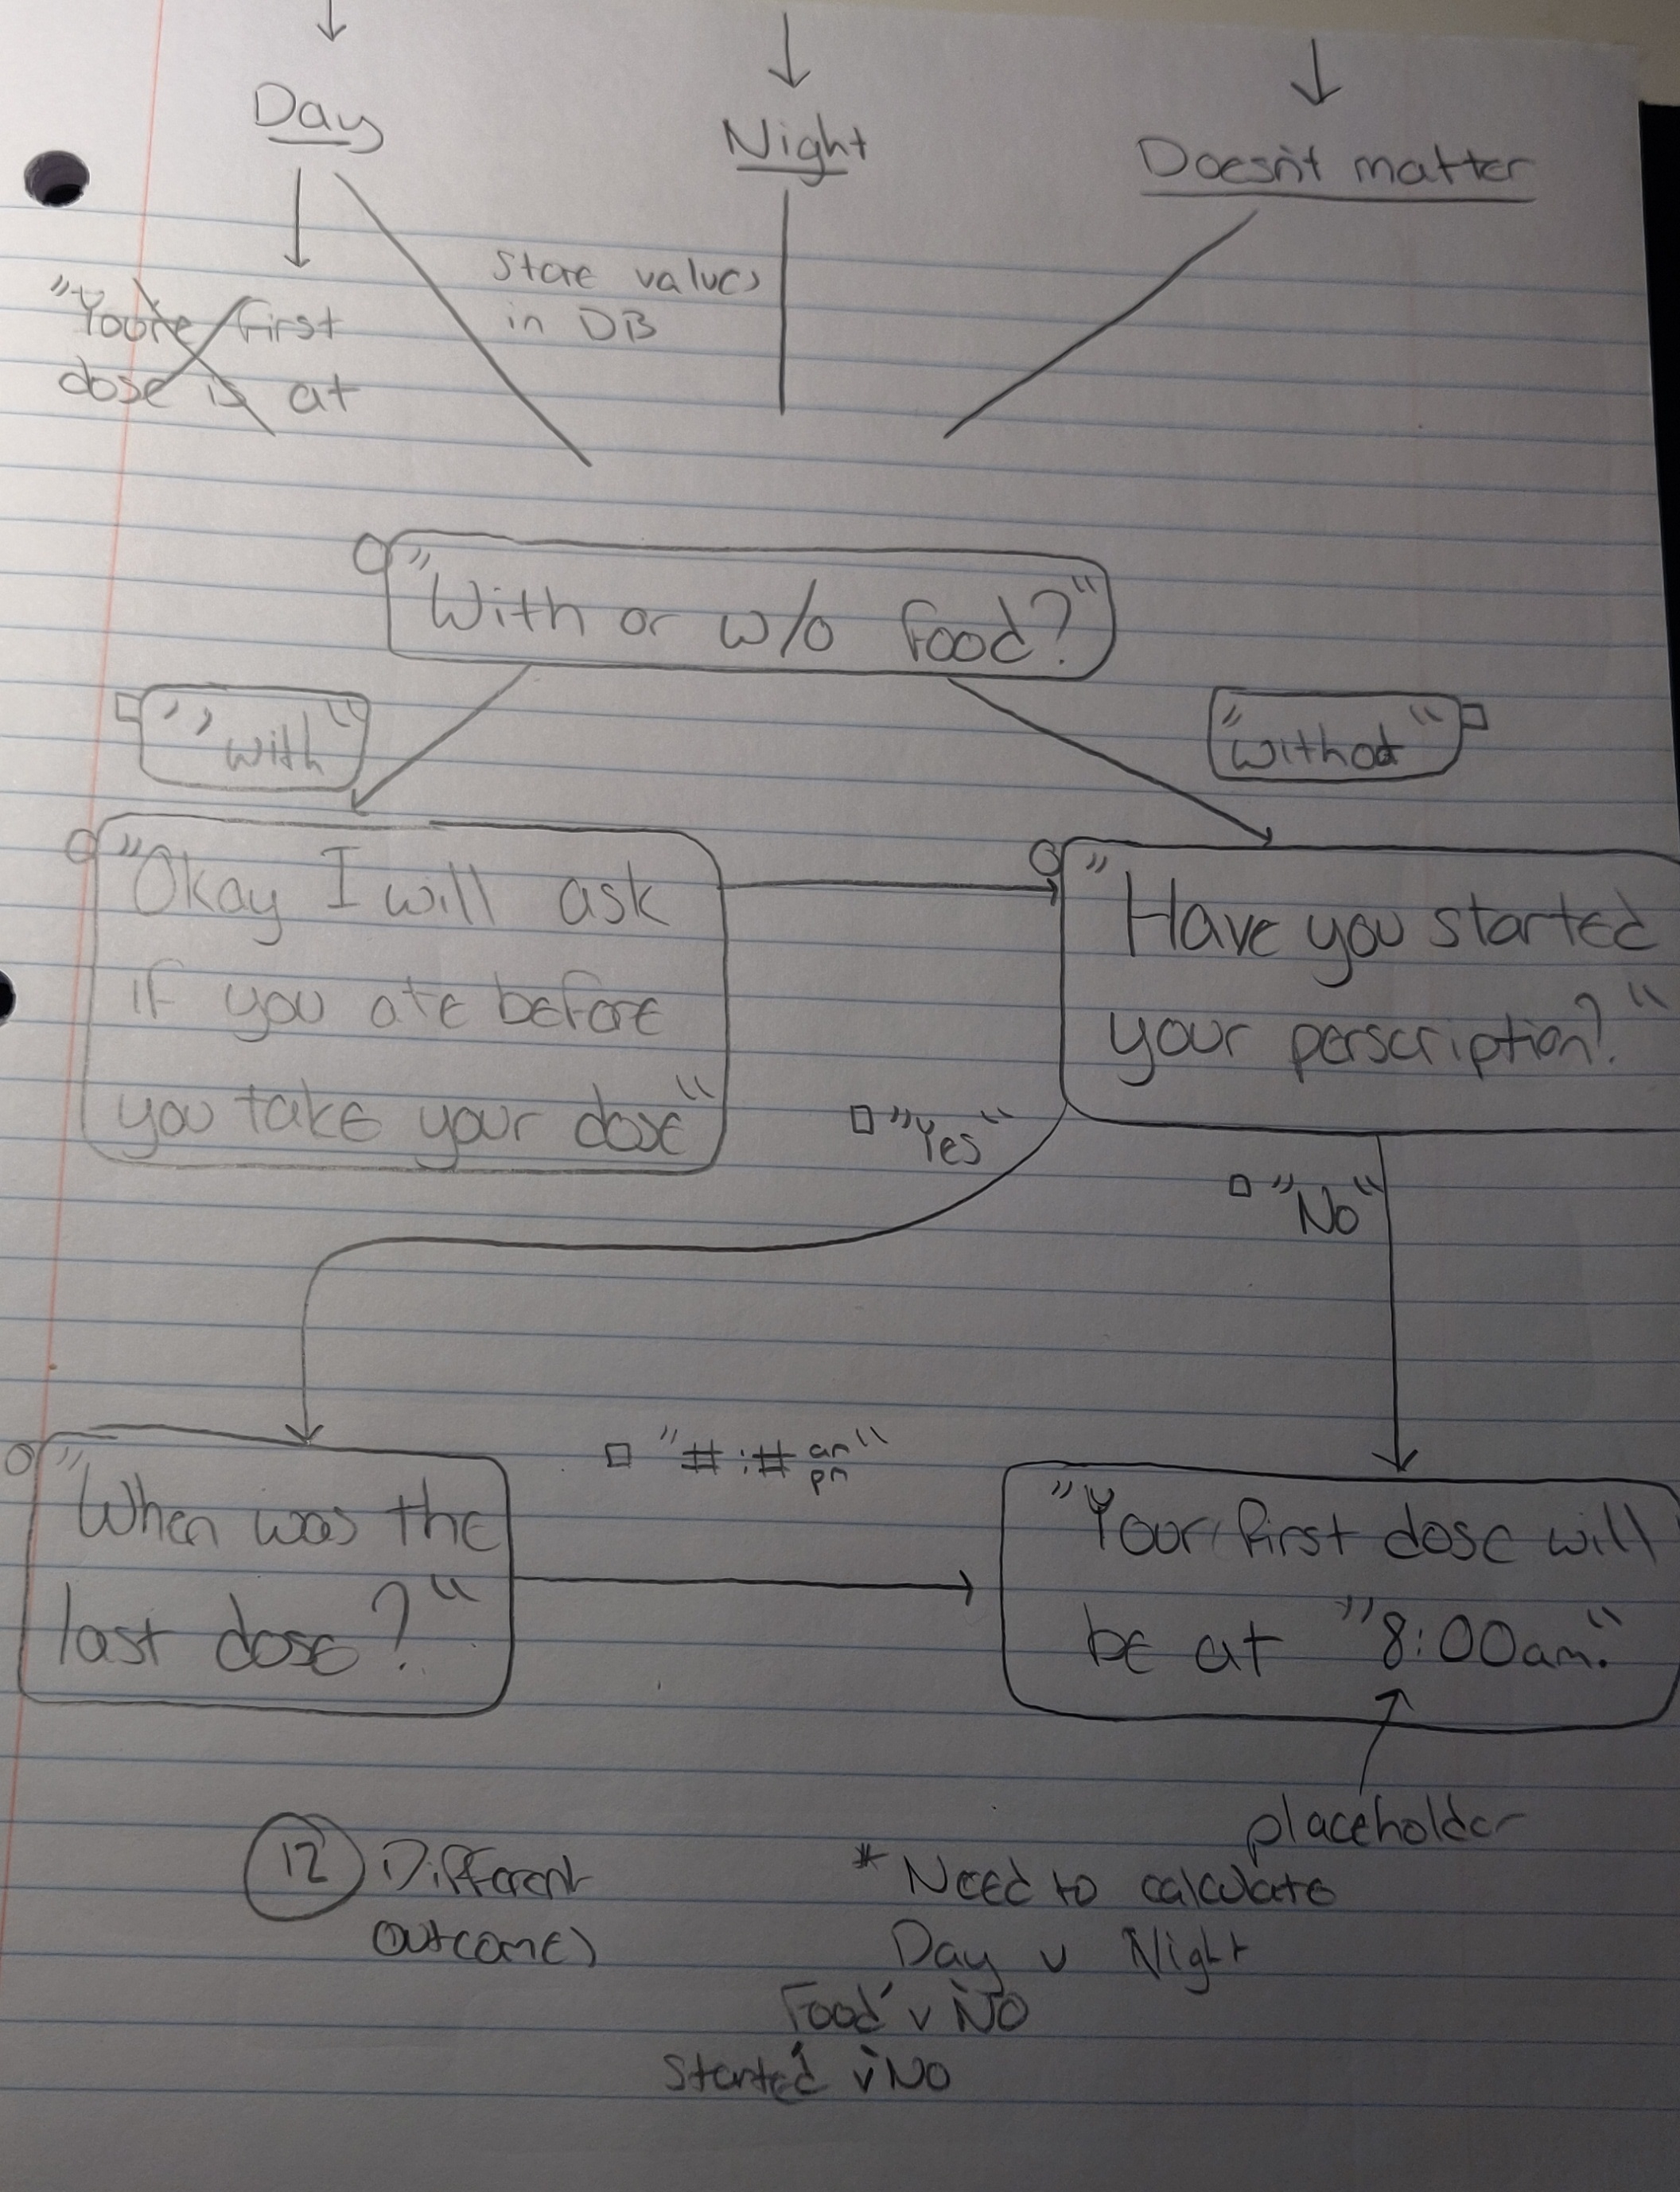 Day
Night
Doesn't matter
Store values
in DB
"You're first
dose is at
"With or w/o food?"
"with"
"without"
"Okay I will ask
if you ate before
you take your dose"
"Have you started
your perscription?"
"Yes"
"No"
"#:# am
pm"
"When was the
last dose?"
"Your first dose will
be at "8:00am."
placeholder
12 Different
outcomes
* Need to calculate
Day v Night
Food v NO
Started v NO